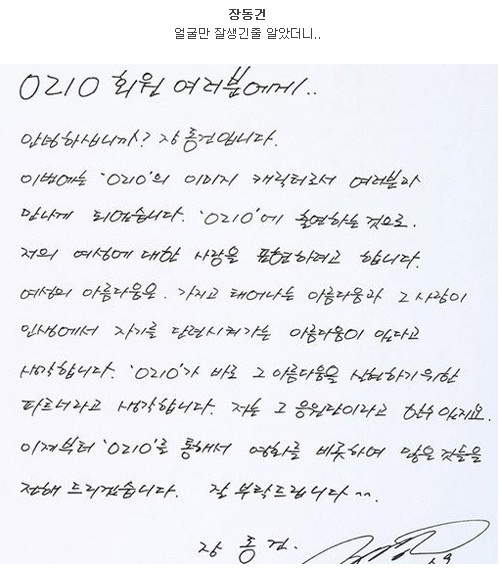 장동건
얼굴만 잘생긴줄 알았더니..
O2IO 회원 여러분에게..
안녕하십니까? 장동건입니다.
이번에는 'O2IO'의 이미지 캐릭터로서 여러분과
만나게 되었습니다. 'O2IO'에 출연하는 것으로.
저의 여성에 대한 사랑을 표현하려고 합니다.
여성의 아름다움은. 가지고 태어나는 아름다움과 그 사람이
인생에서 자기를 단련시켜가는 아름다움이 있다고
생각합니다. 'O2IO'가 바로 그 아름다움을 실현하기 위한
파트너라고 생각합니다. 저는 그 응원단이라고 할수 있지요.
이제부터 'O2IO'를 통해서 영화를 비롯하여 많은 것들을
전해 드리겠습니다. 잘 부탁드립니다 ^^.
장 동 건.